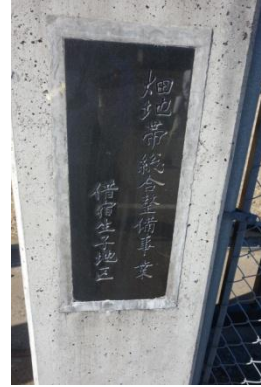 畑地帯総合整備事業
借宿生子地区